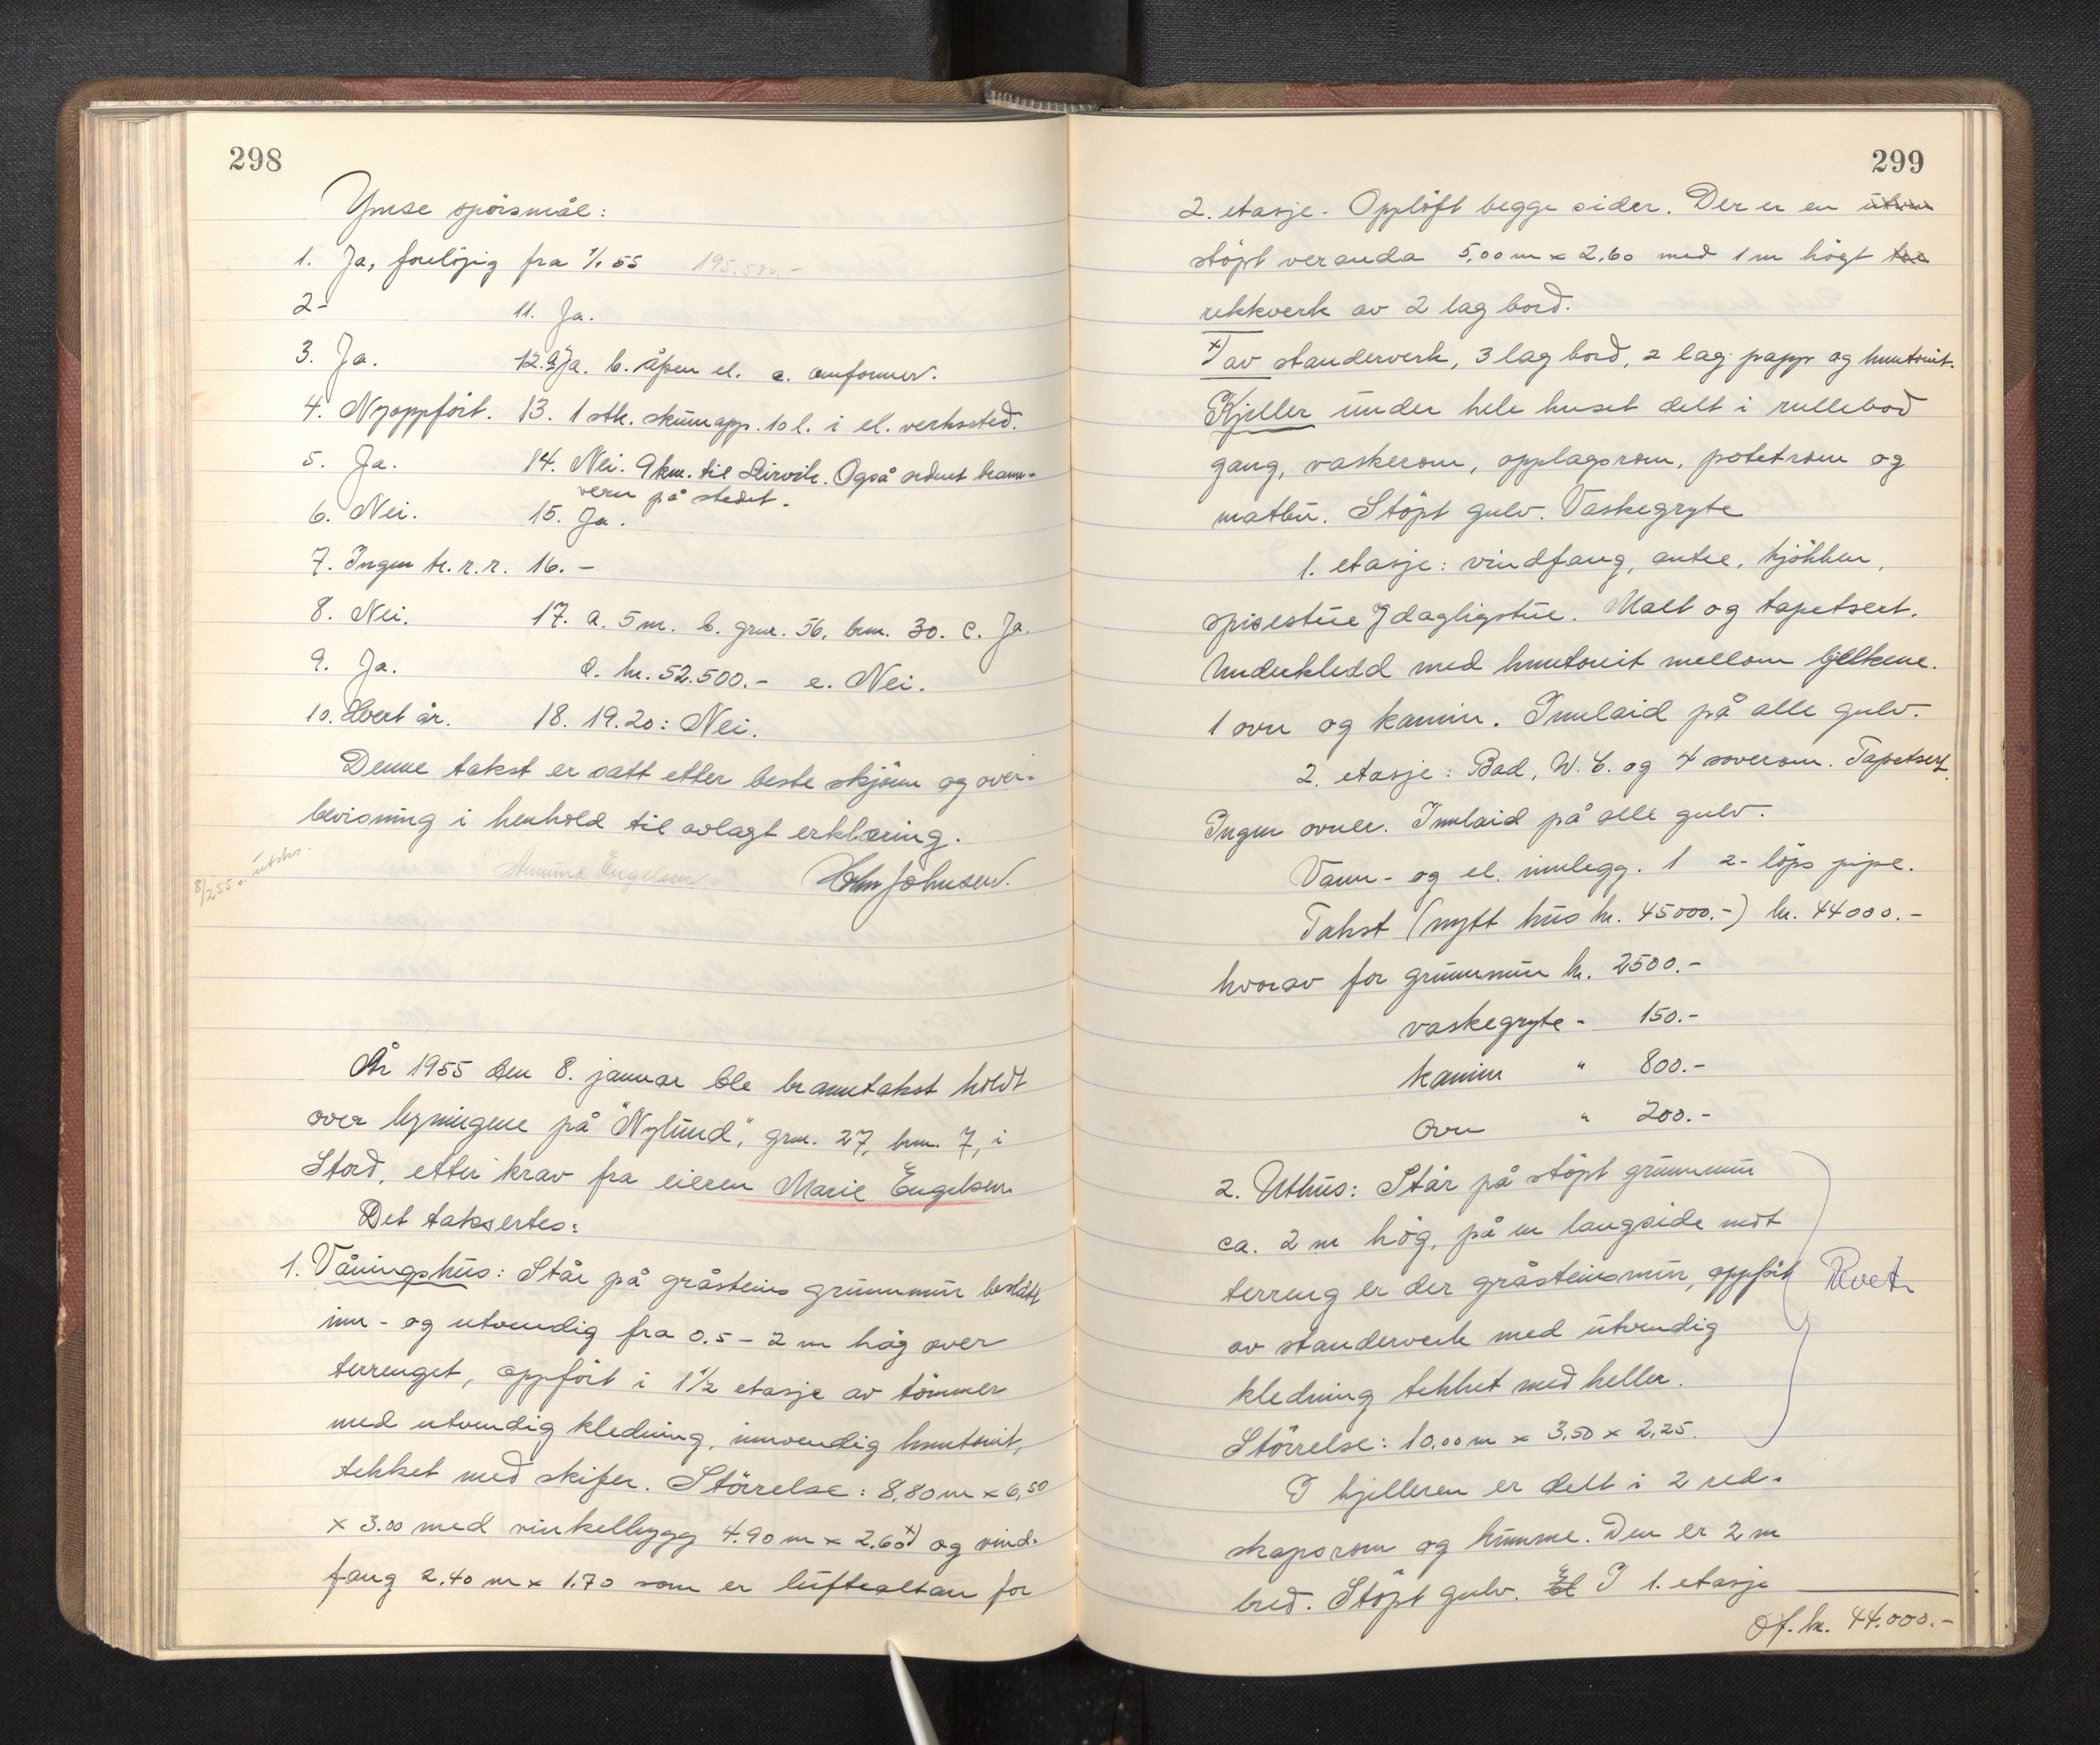 298
Ymse spörsmål:
1. Ja, forelöpig fra 1/1 55 195.500.-
2- 11. Ja.
3. Ja. 12. a) Ja. b. åpen el. c. omformer.
4. Nyoppfört. 13. 1 stk. skumapp. 10 l. i el. verksted.
5. Ja. 14. Nei. 9 km. til Leirvik. Også ordnet brann-
vern på stedet.
6. Nei. 15. Ja.
7. Ingen tr. r. r. 16. -
8. Nei. 17. a. 5 m. b. grnr. 56, brn. 30. c. Ja.
9. Ja. d. kr. 52.500.- e. Nei.
10. Hvert år. 18. 19. 20: Nei.
Denne takst er satt etter beste skjönn og over-
bevisning i henhold til avlagt erklæring.
8/2 55 o. utskr.
Ammund Engelsen John Johnsen.
År 1955 den 8. januar ble branntakst holdt
over bygningene på "Nylund", grn. 27, brn. 7, i
Stord, etter krav fra eieren Marie Engelsen
Det taksertes:
1. Våningshus: Står på gråsteins grunnmur beslått
inn- og utvendig fra 0.5 - 2 m høg over
terrenget, oppfört i 1 1/2 etasje av tömmer
med utvendig kledning, innvendig huntonit,
tekket med skifer. Störrelse: 8,80 m x 6,50
x 3.00 med vinkelbygg 4.90 m x 2.60 x) og vind-
fang 2.40 m x 1.70 som er luftealtan for
299
2. etasje. Opplöft begge sider. Der er en utven
stöpt veranda 5,00 m x 2,60 med 1 m högt tre
rekkverk av 2 lag bord.
x) av standerverk, 3 lag bord, 2 lag papp og huntonit.
Kjeller under hele huset delt i rullebod
gang, vaskerom, opplagsrom, potetrom og
matbu. Stöpt gulv. Vaskegryte
1. etasje: vindfang, entre, kjökken,
spisestue & dagligstue. Malt og tapetsert.
Underkledd med huntonit mellom bjelkene.
1 ovn og kamin. Innlaid på alle gulv.
2. etasje: Bad, W.C. og 4 soverom. Tapetsert.
Ingen ovner. Innlaid på alle gulv.
Vann- og el. innlegg. 1 2-löps pipe.
Takst (nytt hus kr. 45000.-) kr. 44000.-
hvorav for grunnmur kr. 2500.-
vaskegryte - 150.-
kamin " 800.-
ovn " 200.-
2. Uthus: Står på stöpt grunnmur
ca. 2 m høg, på en langside mot
terreng er der gråsteinsmur, oppfört Revet
av standerverk med utvendig
kledning tekket med heller.
Störrelse: 10,00 m x 3,50 x 2,25.
I kjelleren er delt i 2 red-
skapsrom og kumme. Den er 2 m
bred. Stöpt gulv. El I 1. etasje
Of. kr. 44.000.-